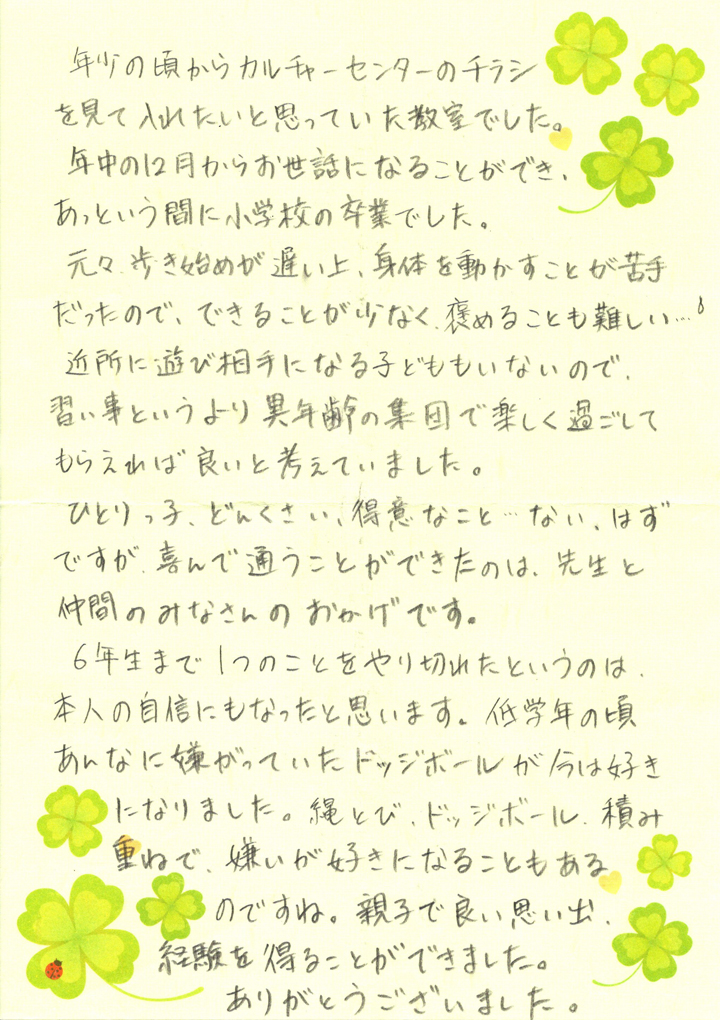 年少の頃からカルチャーセンターのチラシ
を見て入れたいと思っていた教室でした。
年中の12月からお世話になることができ、
あっという間に小学校の卒業でした。
元々、歩き始めが遅い上、身体を動かすことが苦手
だったので、できることが少なく、褒めることも難しい…。
近所に遊び相手になる子どももいないので、
習い事というより異年齢の集団で楽しく過ごして
もらえれば良いと考えていました。
ひとりっ子、どんくさい、得意なこと…ない、はず
ですが、喜んで通うことができたのは、先生と
仲間のみなさんのおかげです。
6年生まで1つのことをやり切れたというのは、
本人の自信にもなったと思います。低学年の頃
あんなに嫌がっていたドッジボールが今は好き
になりました。縄とび、ドッジボール、積み
重ねで、嫌いが好きになることもある
のですね。親子で良い思い出、
経験を得ることができました。
ありがとうございました。